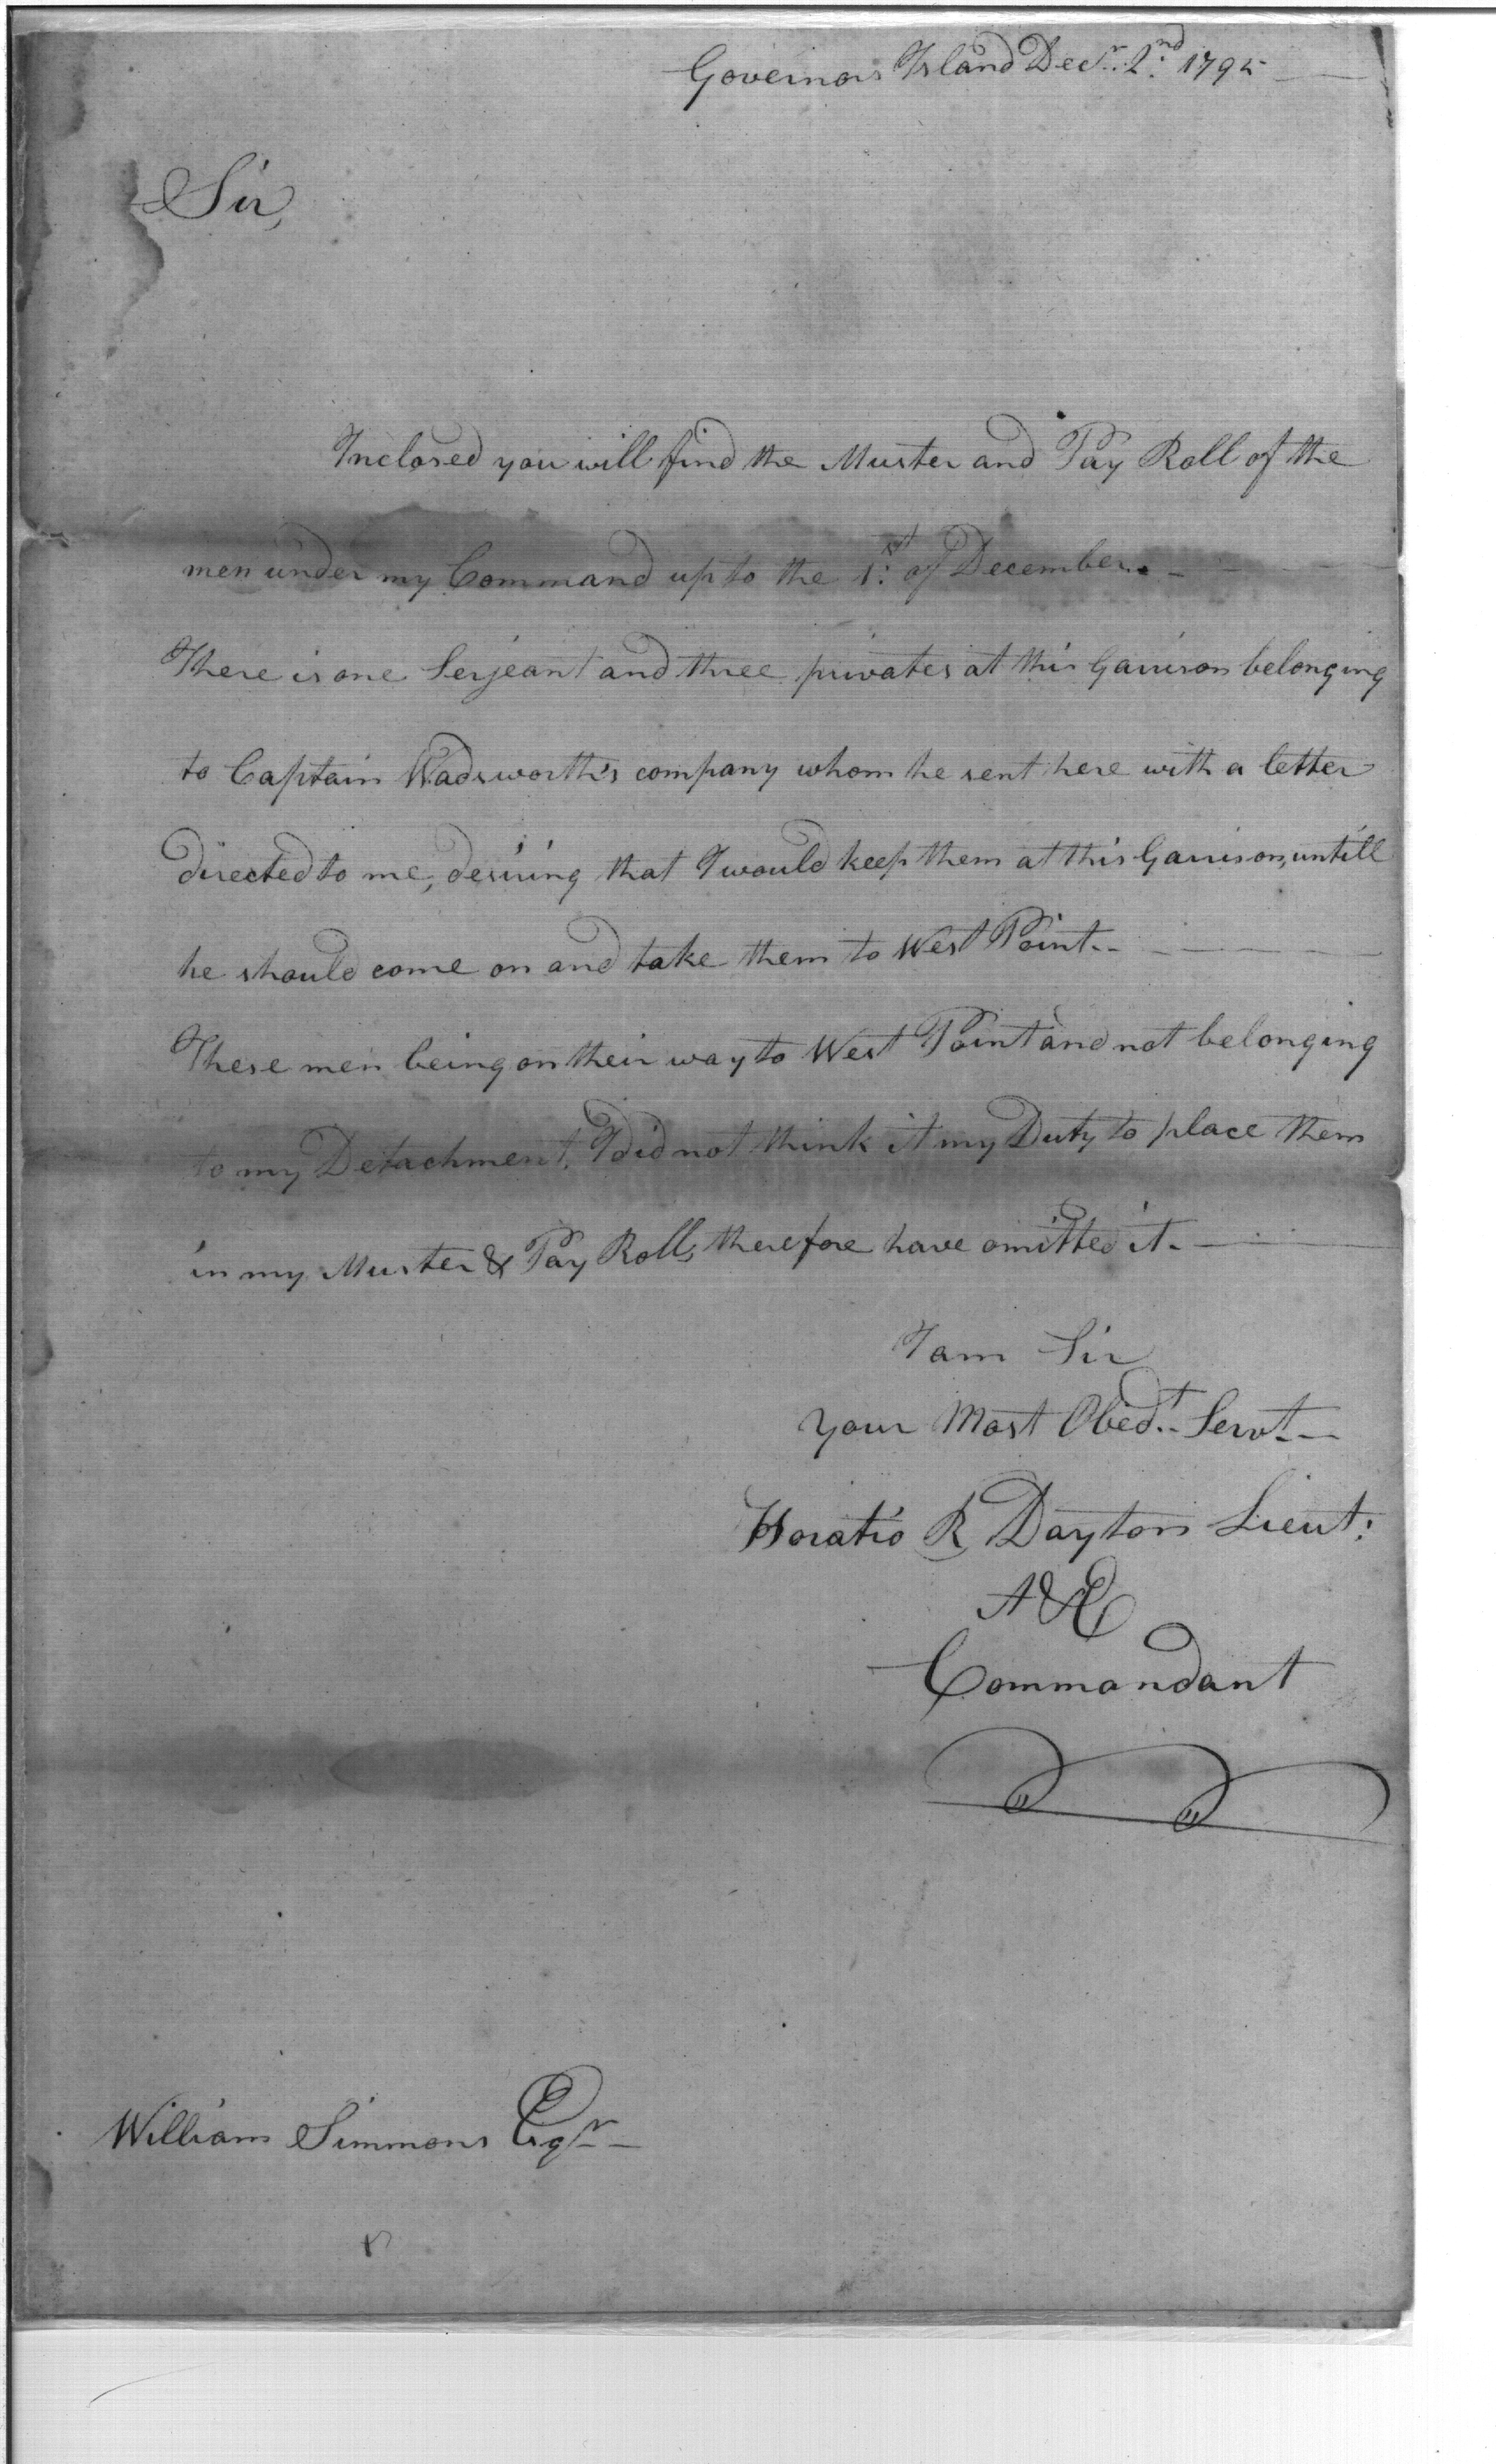 Governors Island Decr. 2nd. 1795
Sir,
Inclosed you will find the Muster and Pay Roll of the
men under my Command up to the 1st. of December. -
There is one Serjeant and three privates at this Garrison belonging
to Captain Wadsworth's company whom he sent here with a letter
directed to me, desiring that I would keep them at this Garrison, untill
he should come on and take them to West Point. -
These men being on their way to West Point and not belonging
to my Detachment, I did not think it my Duty to place them
in my Muster & Pay Roll, therefore have omitted it. -
I am Sir
Your Most Obedt. Servt. -
Horatio R Dayton Lieut:
A & E
Commandant
William Simmons Esqr. -